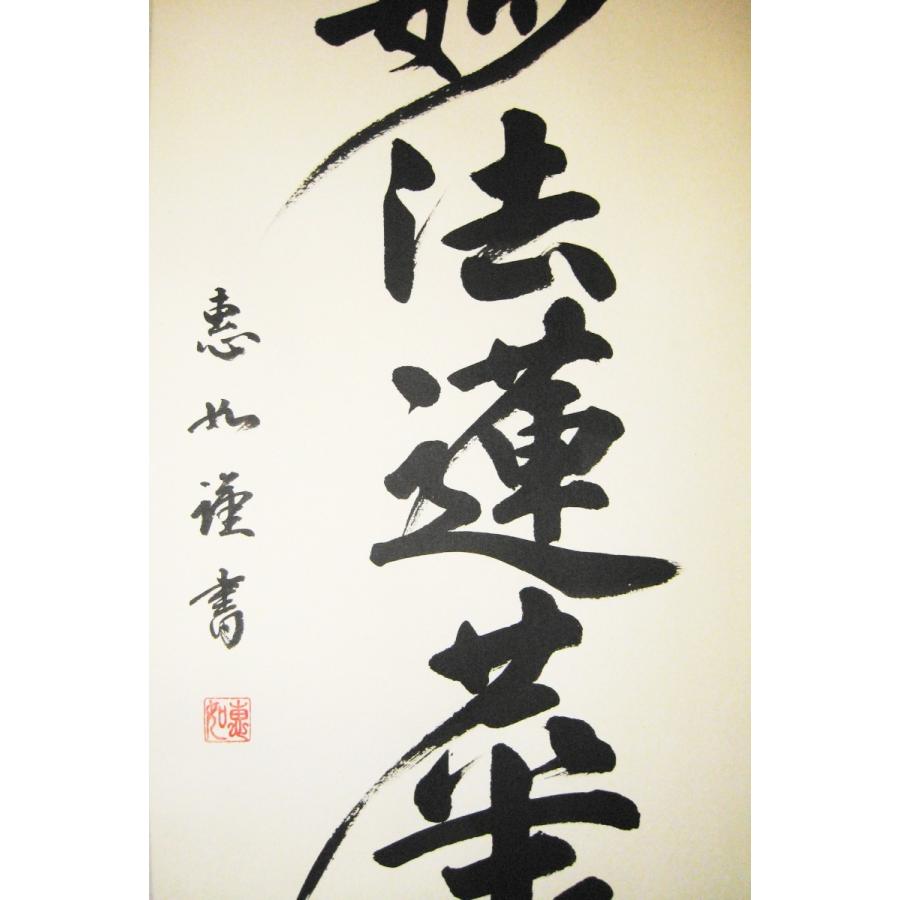 妙法蓮華
惠如謹書
惠如